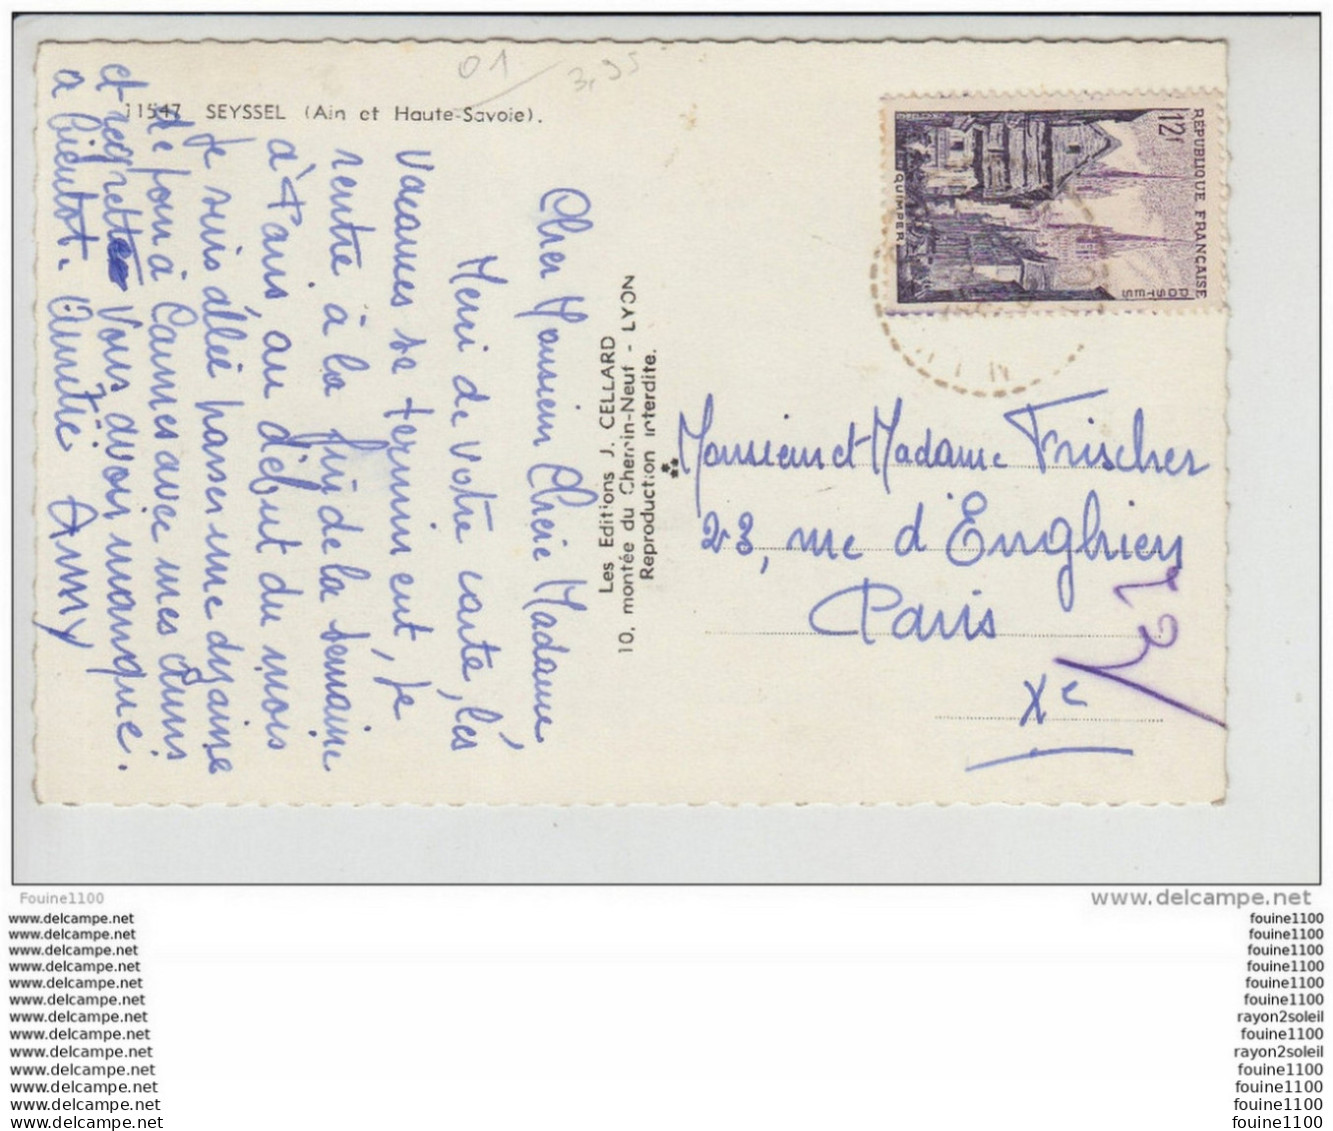 01 3,95
11547 SEYSSEL (Ain et Haute-Savoie).
Cher Monsieur Chère Madame
Merci de votre carte, les
vacances se terminent, je
rentre à la fin de la semaine
à Paris, au début du mois
je suis allée passer une dizaine
de jour à Cannes avec mes amis
et regrette vous avoir manqué.
a bientôt. Amitié Anny
Les Editions J. CELLARD
10, montée du Chemin-Neuf - LYON
Reproduction interdite.
RÉPUBLIQUE FRANÇAISE
POSTES
12f
QUIMPER
Monsieur et Madame Frischer
23, rue d'Enghien
Paris
Xe
Fouine1100
www.delcampe.net
www.delcampe.net
fouine1100
www.delcampe.net
fouine1100
www.delcampe.net
fouine1100
www.delcampe.net
fouine1100
www.delcampe.net
fouine1100
www.delcampe.net
fouine1100
www.delcampe.net
rayon2soleil
www.delcampe.net
fouine1100
www.delcampe.net
rayon2soleil
www.delcampe.net
fouine1100
www.delcampe.net
fouine1100
www.delcampe.net
fouine1100
www.delcampe.net
fouine1100